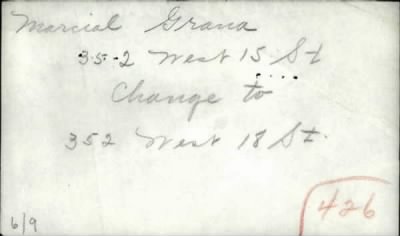 Marcial Grana
352 West 15 St
Change to
352 West 18 St.
426
6/9